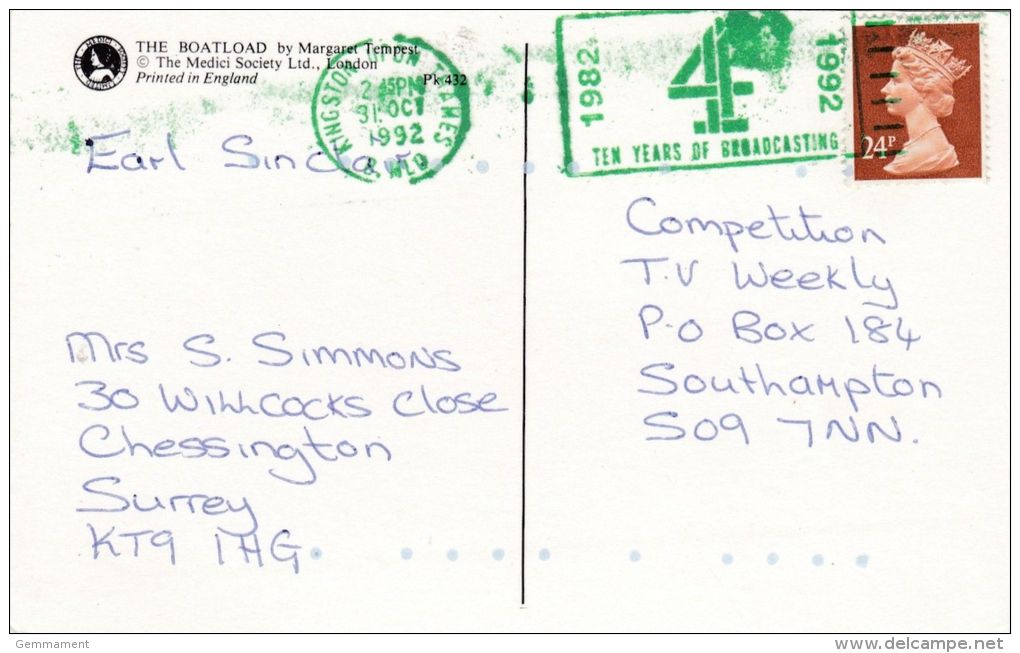 THE BOATLOAD by Margaret Tempest
© The Medici Society Ltd., London
Printed in England
Pk 432
KINGSTON UPON THAMES
2 45PM
31 OCT
1992
1982
4
1992
TEN YEARS OF BROADCASTING
24P
Earl Sinclair
Competition
T.V Weekly
P.O Box 184
Southampton
SO9 7NN.
Mrs S. Simmons
30 Willcocks Close
Chessington
Surrey
KT9 1HG
Gemmament
delcampe.net